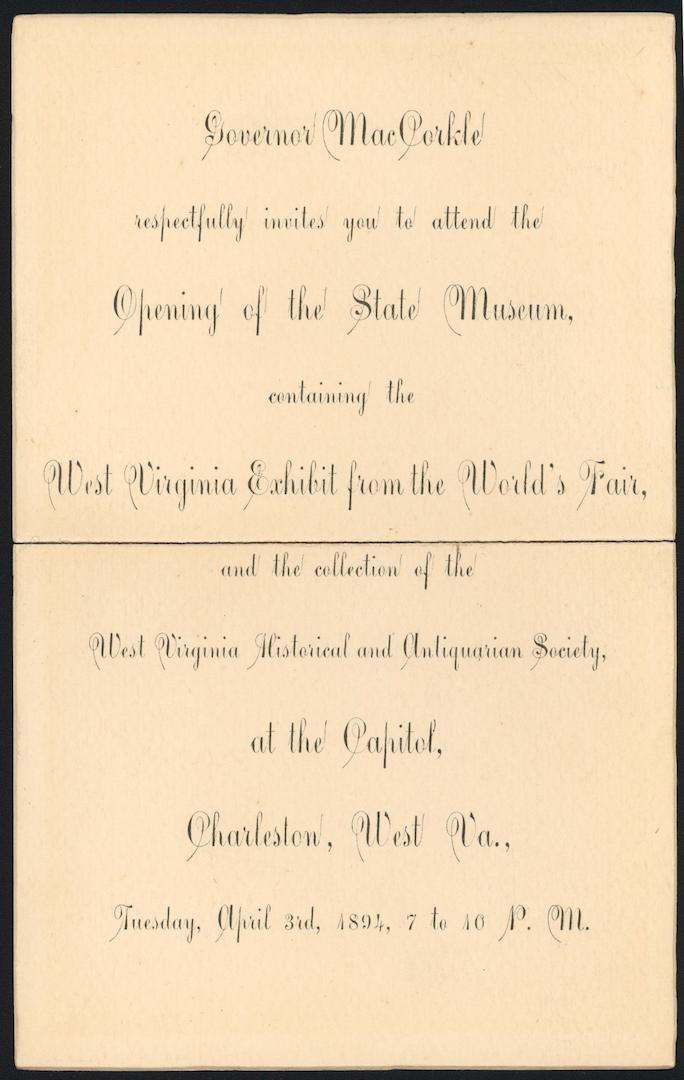 Governor MacCorkle
respectfully invites you to attend the
Opening of the State Museum,
containing the
West Virginia Exhibit from the World's Fair,
and the collection of the
West Virginia Historical and Antiquarian Society,
at the Capitol,
Charleston, West Va.,
Tuesday, April 3rd, 1894, 7 to 10 P. M.